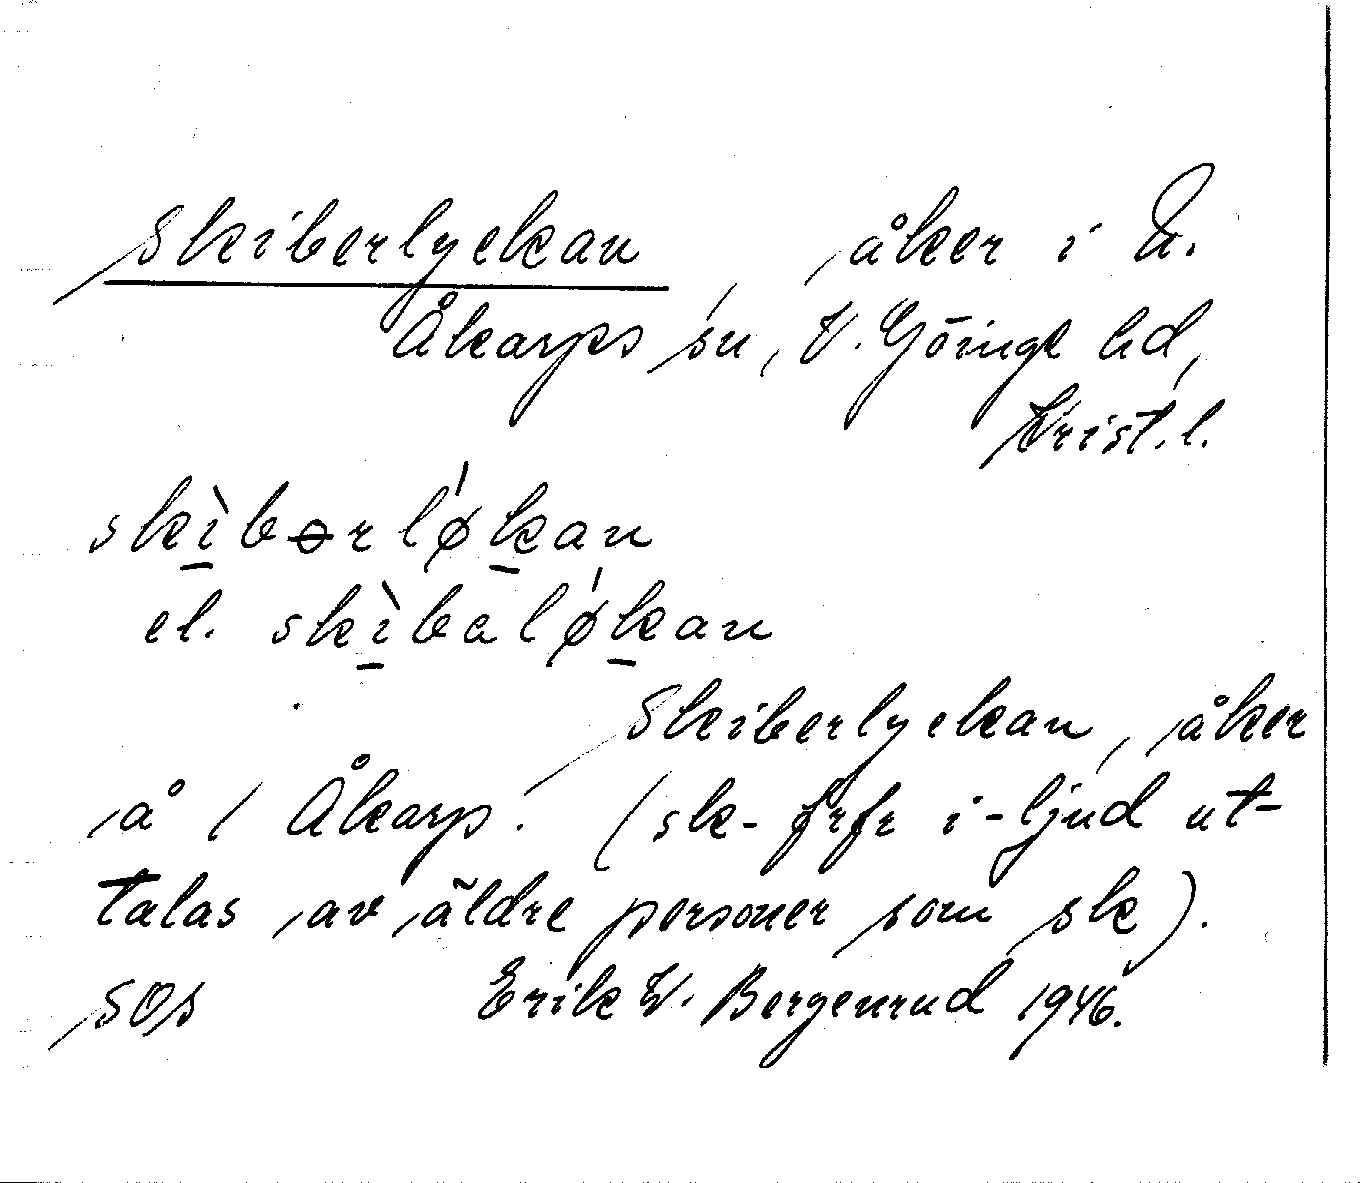 Skiberlyckan, åker i N.
Åkarps sn, V. Göinge hd,
Krist. l.
skìbɵrlǿkan
el. skìbalǿkan
Skiberlyckan, åker
å 1 Åkarp. (sk- framför i-ljud ut-
talas av äldre personer som sk).
SOS Erik W. Bergenrud 1946.